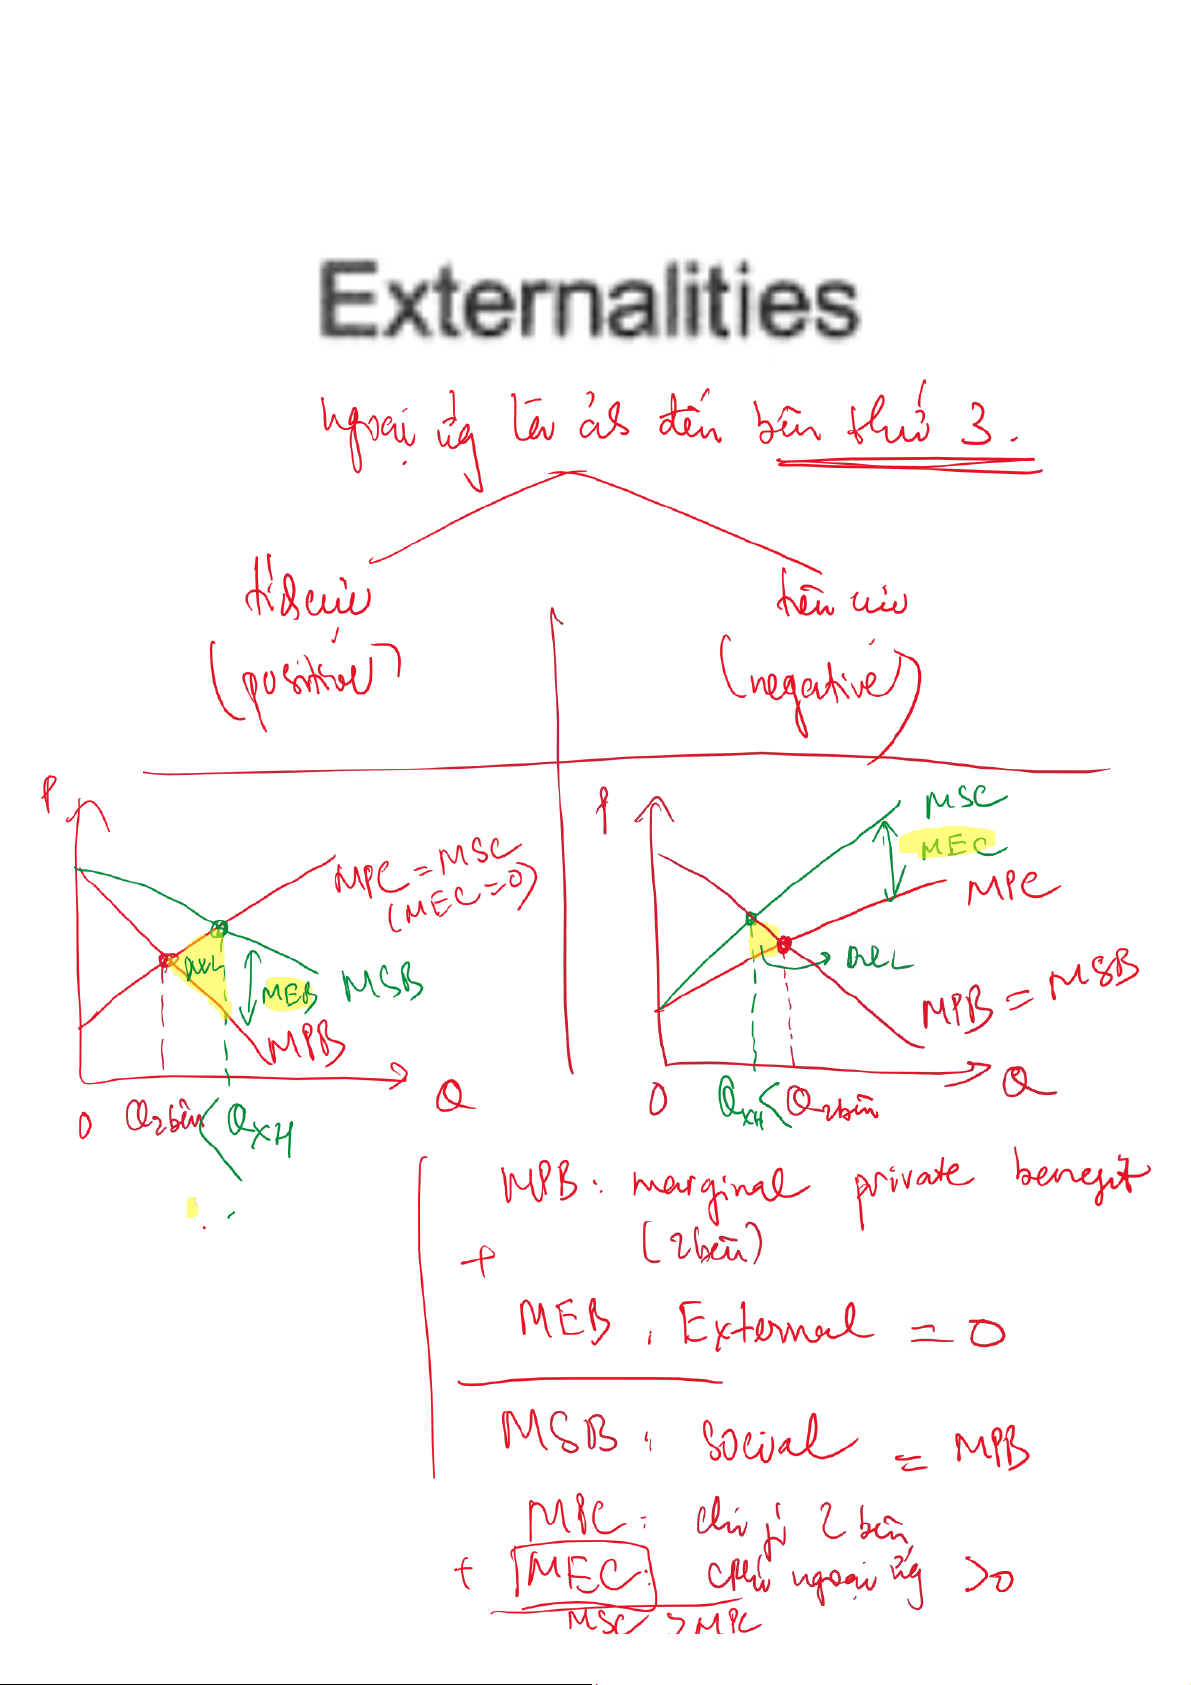 Externalities
ngoại ứng làm ảh đến bên thứ 3.
tíchcực
tiêu cực
(positive)
(negative)
P
MPC = MSC
(MEC=0)
DWL
MEB
MSB
MPB
0
Q2bên < QXH
Q
P
MSC
MEC
MPC
DWL
MPB = MSB
0
QXH < Q2bên
Q
MPB: marginal private benefit
(2bên)
+
MEB: External = 0
MSB: social = MPB
MPC: chi phí 2 bên
+ MEC: cphí ngoại ứng >0
MSC > MPC